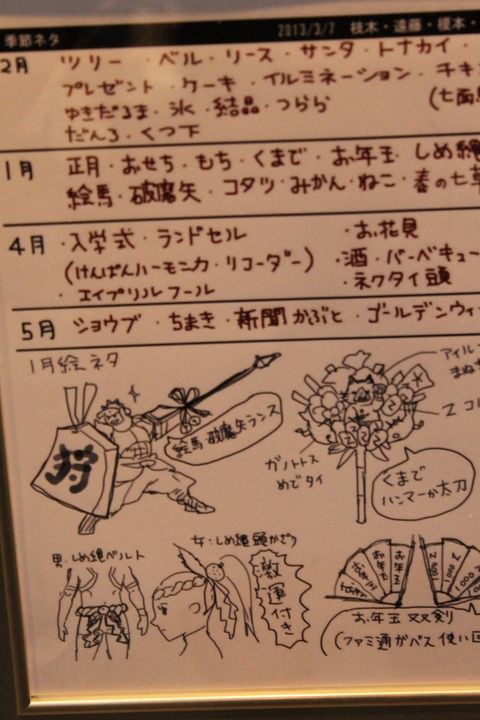 季節ネタ 2013/3/7 枝木・遠藤・榎本・
2月 ツリー・ベル・リース・サンタ・トナカイ・
プレゼント・ケーキ・イルミネーション・チキ
ゆきだるま・氷・結晶・つらら (七面
だんろ・くつ下
1月 正月・おせち・もち・くまで・お年玉 しめ縄
絵馬・破魔矢・コタツ・みかん・ねこ・春の七草
4月 ・入学式・ランドセル ・お花見
(けんばんハーモニカ・リコーダー) ・酒・バーベキュー
・エイプリルフール ・ネクタイ頭
5月 ショウブ・ちまき・新聞かぶと・ゴールデンウィ
1月絵ネタ
狩
絵馬・破魔矢ランス
アイル
まね
Z コ
ガノトトス
めでタイ
くまで
ハンマーか太刀
男:しめ縄ベルト
女:しめ縄頭かざり
激運付き
お年玉
お年玉
お年玉双剣
(ファミ通がパス使い回